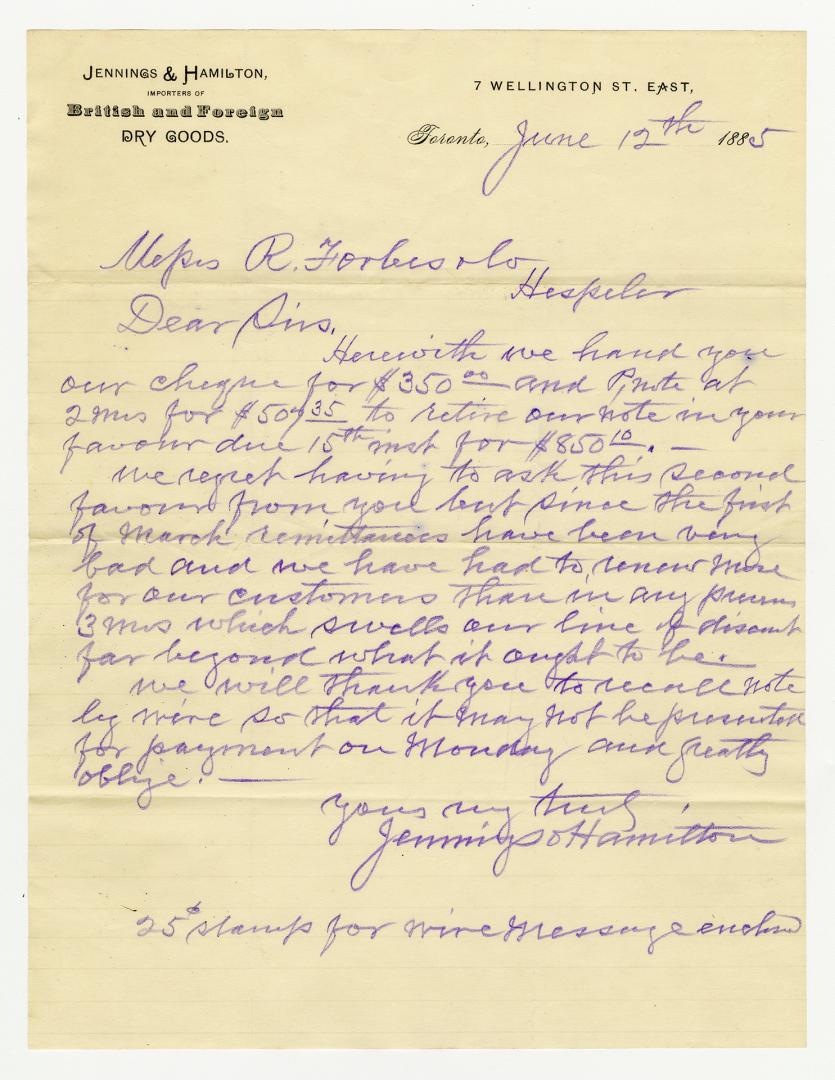 JENNINGS & HAMILTON,
IMPORTERS OF
British and Foreign
DRY GOODS.
7 WELLINGTON ST. EAST,
Toronto, June 12th 1885
Messrs R. Forbes & Co
Hespeler
Dear Sirs,
Herewith we hand you
our cheque for $350 00 and P, note at
2 mos for $507 35 to retire our note in your
favour due 15th inst for $850 10. —
We regret having to ask this second
favour from you but since the first
of March remittances have been very
bad and we have had to renew more
for our customers than in any previous
3 mos which swells our line of discount
far beyond what it ought to be. —
We will thank you to recall note
by wire so that it may not be presented
for payment on Monday and greatly
oblige. —
Yours very truly,
Jennings & Hamilton
25¢ stamps for wire message enclosed